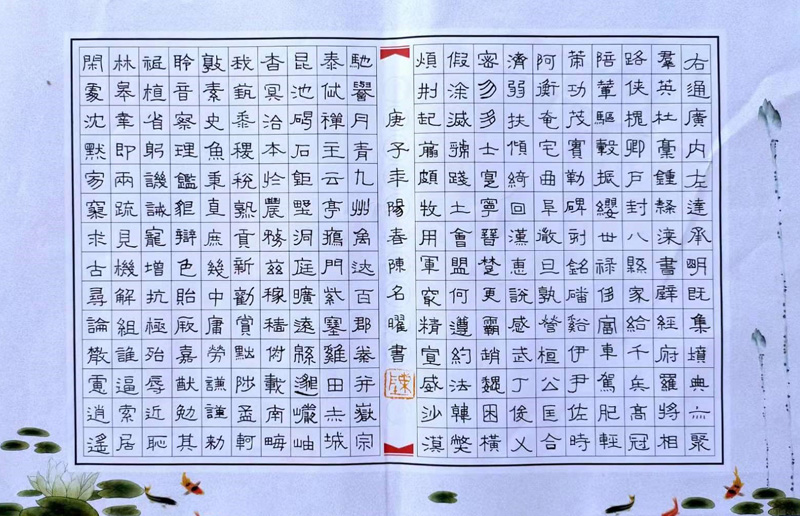 右通廣内左達承明既集墳典亦聚
羣英杜稾鍾隸漆書壁經府羅將相
路俠槐卿戶封八縣家給千兵高冠
陪輦驅轂振纓世祿侈富車駕肥輕
策功茂實勒碑刻銘磻谿伊尹佐時
阿衡奄宅曲阜微旦孰營桓公匡合
濟弱扶傾綺回漢惠說感武丁俊乂
密勿多士寔寧晉楚更霸趙魏困橫
假途滅虢踐土會盟何遵約法韓弊
煩刑起翦頗牧用軍最精宣威沙漠
庚子年陽春陳名曜書
馳譽丹青九州禹迹百郡秦并嶽宗
泰岱禪主云亭鴈門紫塞雞田赤城
昆池碣石鉅野洞庭曠遠緜邈巗岫
杳冥治本於農務茲稼穡俶載南畮
我藝黍稷稅熟貢新勸賞黜陟孟軻
敦素史魚秉直庶幾中庸勞謙謹勑
聆音察理鑑貌辯色貽厥嘉猷勉其
祗植省躬譏誡寵增抗極殆辱近恥
林皋幸即兩疏見機解組誰逼索居
閑處沈默寂寥求古尋論散慮逍遙